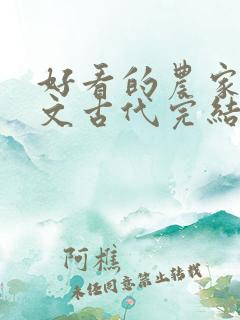 好看的農家
文古代完結
阿樵
未經同意禁止轉載